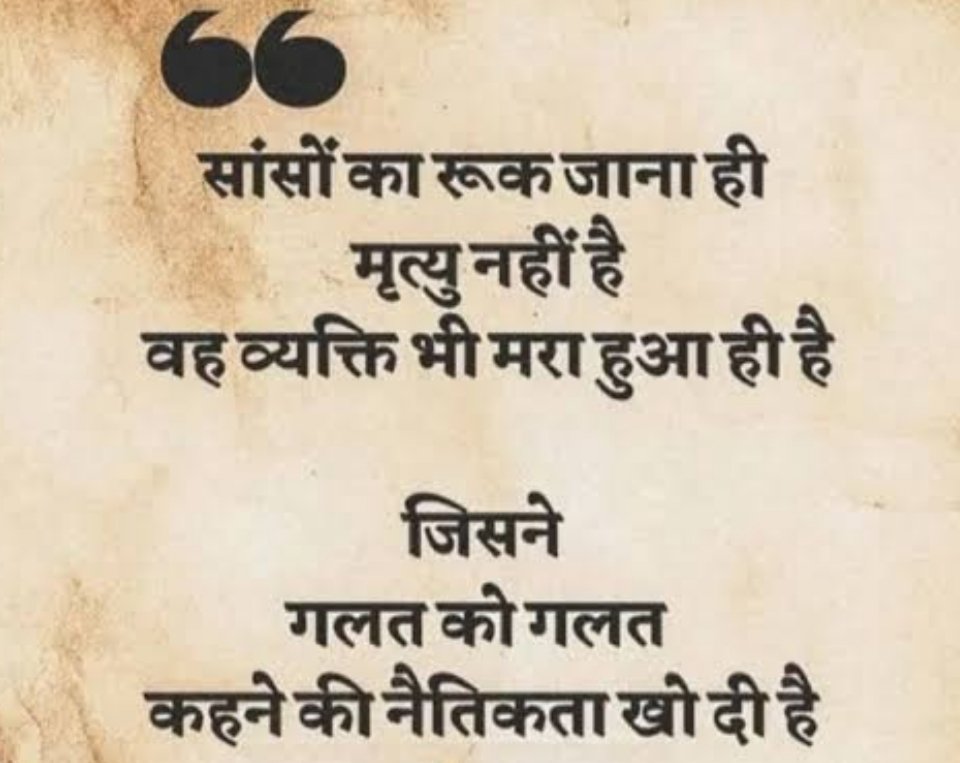 सांसों का रूक जाना ही
मृत्यु नहीं है
वह व्यक्ति भी मरा हुआ ही है
जिसने
गलत को गलत
कहने की नैतिकता खो दी है